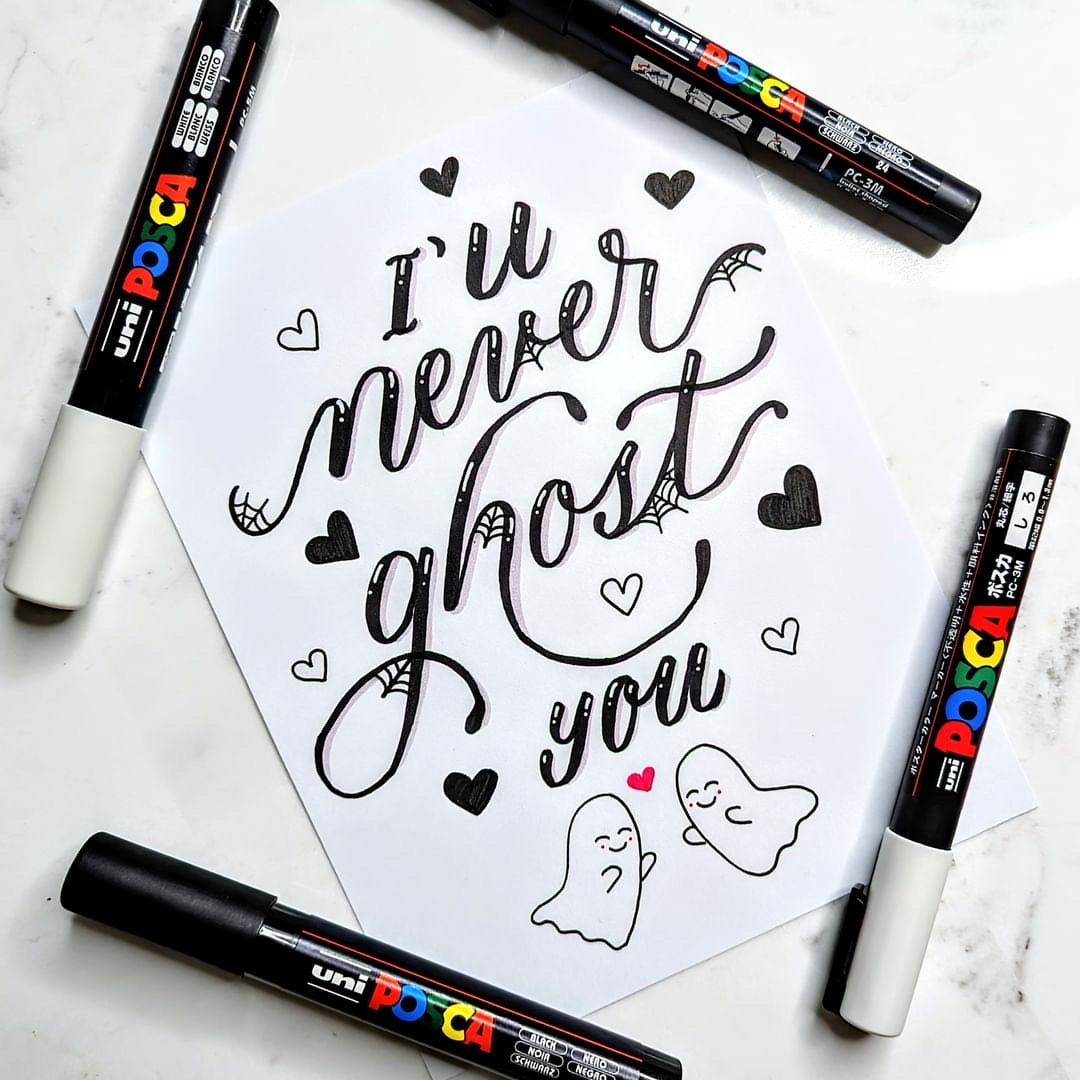 I'll
never
ghost
you
uni POSCA
WHITE
BLANC
WEISS
BIANCO
BLANCO
PC-5M
uni POSCA
BLACK
NOIR
SCHWARZ
NERO
NEGRO
24
PC-3M
bullet shaped
uni POSCA
ボスカ
PC-3M
丸芯/細字
しろ
0.9~1.3mm
uni POSCA
BLACK
NOIR
SCHWARZ
NERO
NEGRO